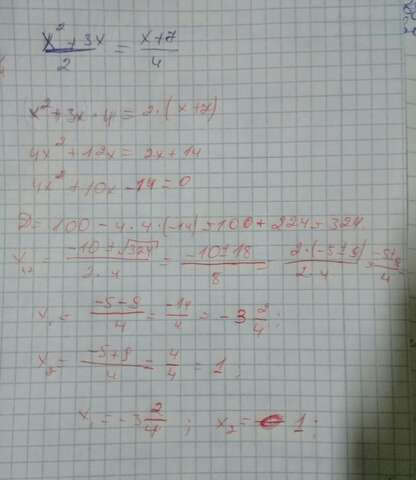 x² + 3x / 2 = x+7 / 4
x²+3x · 4 = 2·(x+7)
4x²+12x = 2x+14
4x²+10x-14=0
D= 100 - 4·4·(-14)=100+224=324
x₁,₂= -10±√324 / 2·4 = -10±18 / 8 = 2·(-5±9) / 2·4 = -5±9 / 4
x₁= -5-9 / 4 = -14 / 4 = -3 2/4;
x₂= -5+9 / 4 = 4/4 = 1;
x₁=-3 2/4; x₂= 1;